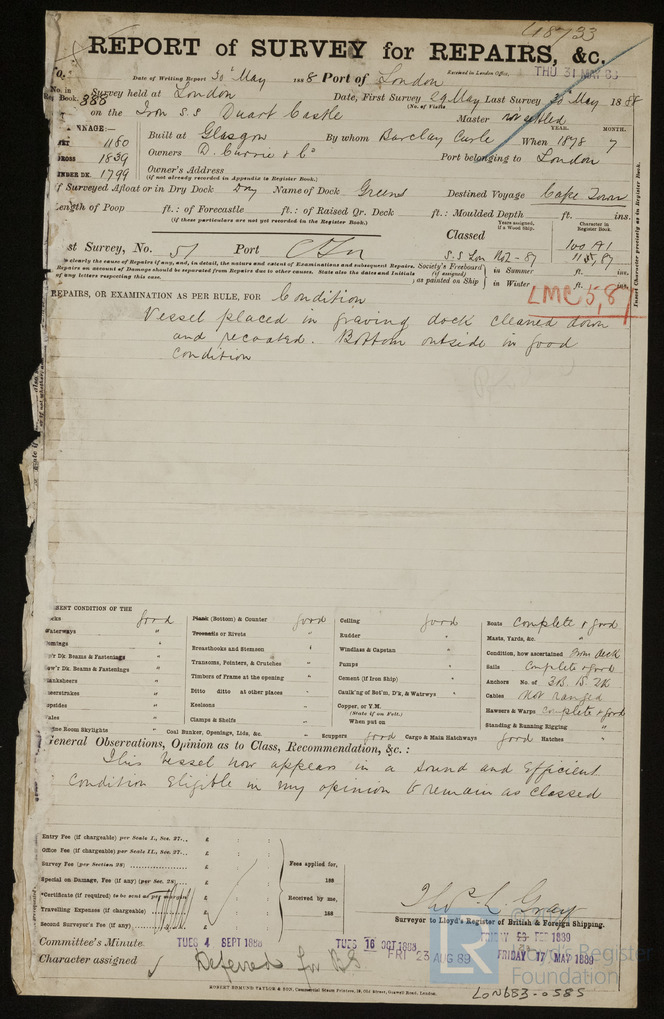 48733
REPORT of SURVEY for REPAIRS, &c.
Date of Writing Report 30th May 1888 Port of London
Received in London Office, THU 31 MAY 88
No. in Reg. Book. 388 Survey held at London Date, First Survey 29 May Last Survey 30th May 1888
(No. of Visits
on the Iron S.S Duart Castle Master not settled
NNAGE:—
1180
GROSS 1839
UNDER DK. 1799
Built at Glasgow By whom Barclay Curle When YEAR. 1878 MONTH. 7
Owners D. Currie & Co Port belonging to London
Owner's Address
(if not already recorded in Appendix to Register Book.)
If Surveyed Afloat or in Dry Dock Dry Name of Dock Greens Destined Voyage Cape Town
Length of Poop ft.: of Forecastle ft.: of Raised Qr. Deck ft.: Moulded Depth ft. ins.
(if these particulars are not yet recorded in the Register Book.)
Years assigned, if a Wood Ship.
Character in Register Book.
Insert Character precisely as in Register Book.
st Survey, No. 51 Port
Classed 100 A1
S.S Lon No2-87 11 87
e clearly the cause of Repairs if any, and, in detail, the nature and extent of Examinations and subsequent Repairs.
Repairs on account of Damage should be separated from Repairs due to other causes. State also the dates and Initials
of any letters respecting this case.
Society's Freeboard (if assigned) as painted on Ship
in Summer ft. ins.
in Winter ft. ins.
REPAIRS, OR EXAMINATION AS PER RULE, FOR Condition
LMC 5,87
Vessel placed in graving dock cleaned down
and recoated. Bottom outside in good
condition
ENT CONDITION OF THE
ks good
Waterways "
mings "
p'r D'k Beams & Fastenings "
ow'r D'k Beams & Fastenings "
nksheers "
eerstrakes "
opsides "
ales "
gine Room Skylights "
Plank (Bottom) & Counter good
Treenails or Rivets "
Breasthooks and Stemson "
Transoms, Pointers, & Crutches "
Timbers of Frame at the opening "
Ditto ditto at other places "
Keelsons "
Clamps & Shelfs "
Coal Bunker, Openings, Lids, &c. "
Ceiling good
Rudder "
Windlass & Capstan "
Pumps "
Cement (if Iron Ship) "
Caulk'ng of Bot'm, D'k, & Watrwys "
Copper, or Y.M.
(State if on Felt.)
When put on
Scuppers good Cargo & Main Hatchways good Hatches "
Boats complete & good
Masts, Yards, &c. "
Condition, how ascertained from deck
Sails Complete & good
Anchors No. of 3B. 1S. 2K
Cables Not ranged
Hawsers & Warps complete & good
Standing & Running Rigging "
General Observations, Opinion as to Class, Recommendation, &c. :
This vessel now appears in a sound and efficient
condition Eligible in my opinion to remain as classed
Entry Fee (if chargeable) per Scale I., Sec. 27... £
Office Fee (if chargeable) per Scale II., Sec. 27... £
Survey Fee (per Section 28) £
Special on Damage, Fee (if any) (per Sec. 28) £
*Certificate (if required) to be sent as per margin £
Travelling Expenses (if chargeable) £
Second Surveyor's Fee (if any) £
Fees applied for,
188
Received by me,
188
Thos. L Gray
Surveyor to Lloyd's Register of British & Foreign Shipping.
Committee's Minute TUES 4 SEPT 1888 TUES 16 OCT 1888 FRIDAY FEB 1889
FRI 23 AUG 89 FRIDAY 17 MAY 1889
Character assigned Deferred for BS
LR Lloyd's Register Foundation
ROBERT EDMUND TAYLOR & SON, Commercial Steam Printers, 19, Old Street, Goswell Road, London.
LON683-0585